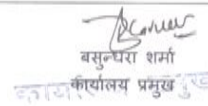 बसुन्धरा शर्मा
कार्यालय प्रमुख